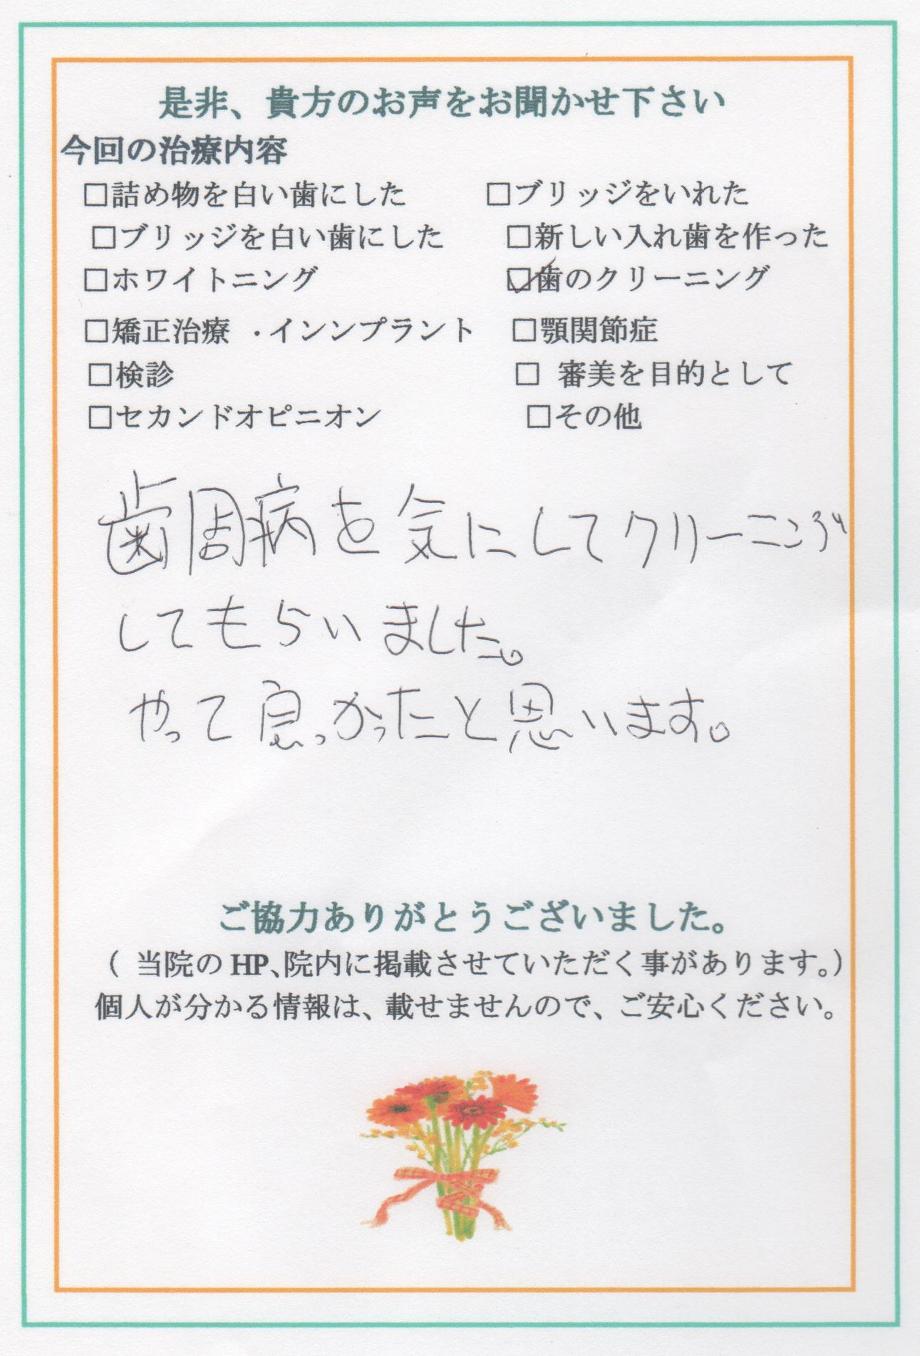 是非、貴方のお声をお聞かせ下さい
今回の治療内容
□詰め物を白い歯にした □ブリッジをいれた
□ブリッジを白い歯にした □新しい入れ歯を作った
□ホワイトニング ☑歯のクリーニング
□矯正治療 ・インンプラント □顎関節症
□検診 □ 審美を目的として
□セカンドオピニオン □その他
歯周病を気にしてクリーニング
してもらいました。
やって良かったと思います。
ご協力ありがとうございました。
( 当院の HP、院内に掲載させていただく事があります。)
個人が分かる情報は、載せませんので、ご安心ください。